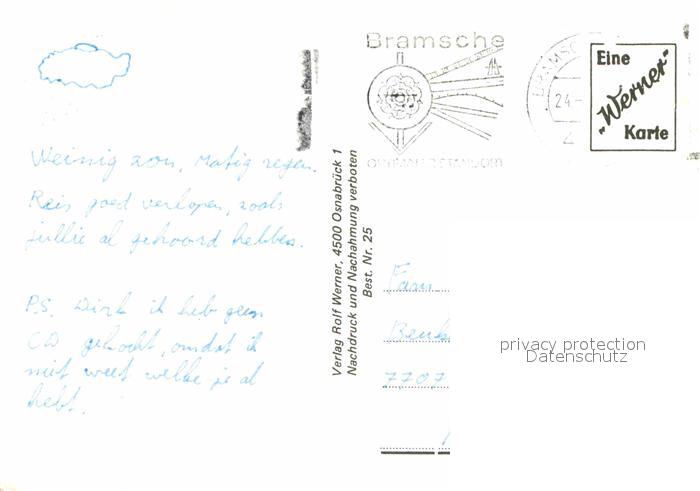 Weinig zon, matig regen.
Reis goed verlopen, zoals
jullie al gehoord hebben.
P.S. Dirk ik heb geen
CD gekocht, omdat ik
niet weet welke je al
hebt.
Verlag Rolf Werner, 4500 Osnabrück 1
Nachdruck und Nachahmung verboten
Best. Nr. 25
Bramsche
BRAMSC
24.-
4
Eine
„Werner"
Karte
Fam
7707
privacy protection
Datenschutz